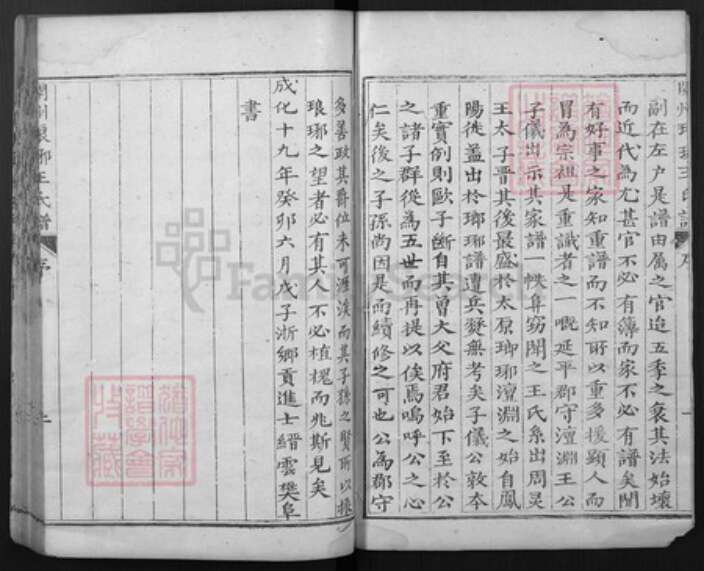 副在左户是譜由属之官迨五季之衰其法始壞
而近代為尤甚官不必有簿而家不必有譜矣間
有好事之家知重譜而不知所以重多援顕人而
冒為宗祖是重識者之一嘅延平郡守澶淵王公
子儀出示其家譜一帙弁窈聞之王氏系出周吴
王太子晋其後最盛於太原瑯琊澶淵之始自鳳
陽徙盖出於瑯琊譜遭兵燹無考矣子儀公敦本
重實倒則歐子斷自其曽大父府君始下至於公
之諸子群從為五世而再提以俟焉嗚呼公之心
仁矣後之子孫尚因是而續修之可也公為郡守
多善政其爵位未可涯涘而其子孫之賢所以振
琅琊之望者必有其人不必植槐而兆斯見矣
成化十九年癸卯六月戊子浙鄉貢進士縉雲樊阜
書
琊王氏譜
序
二
FamilySearch